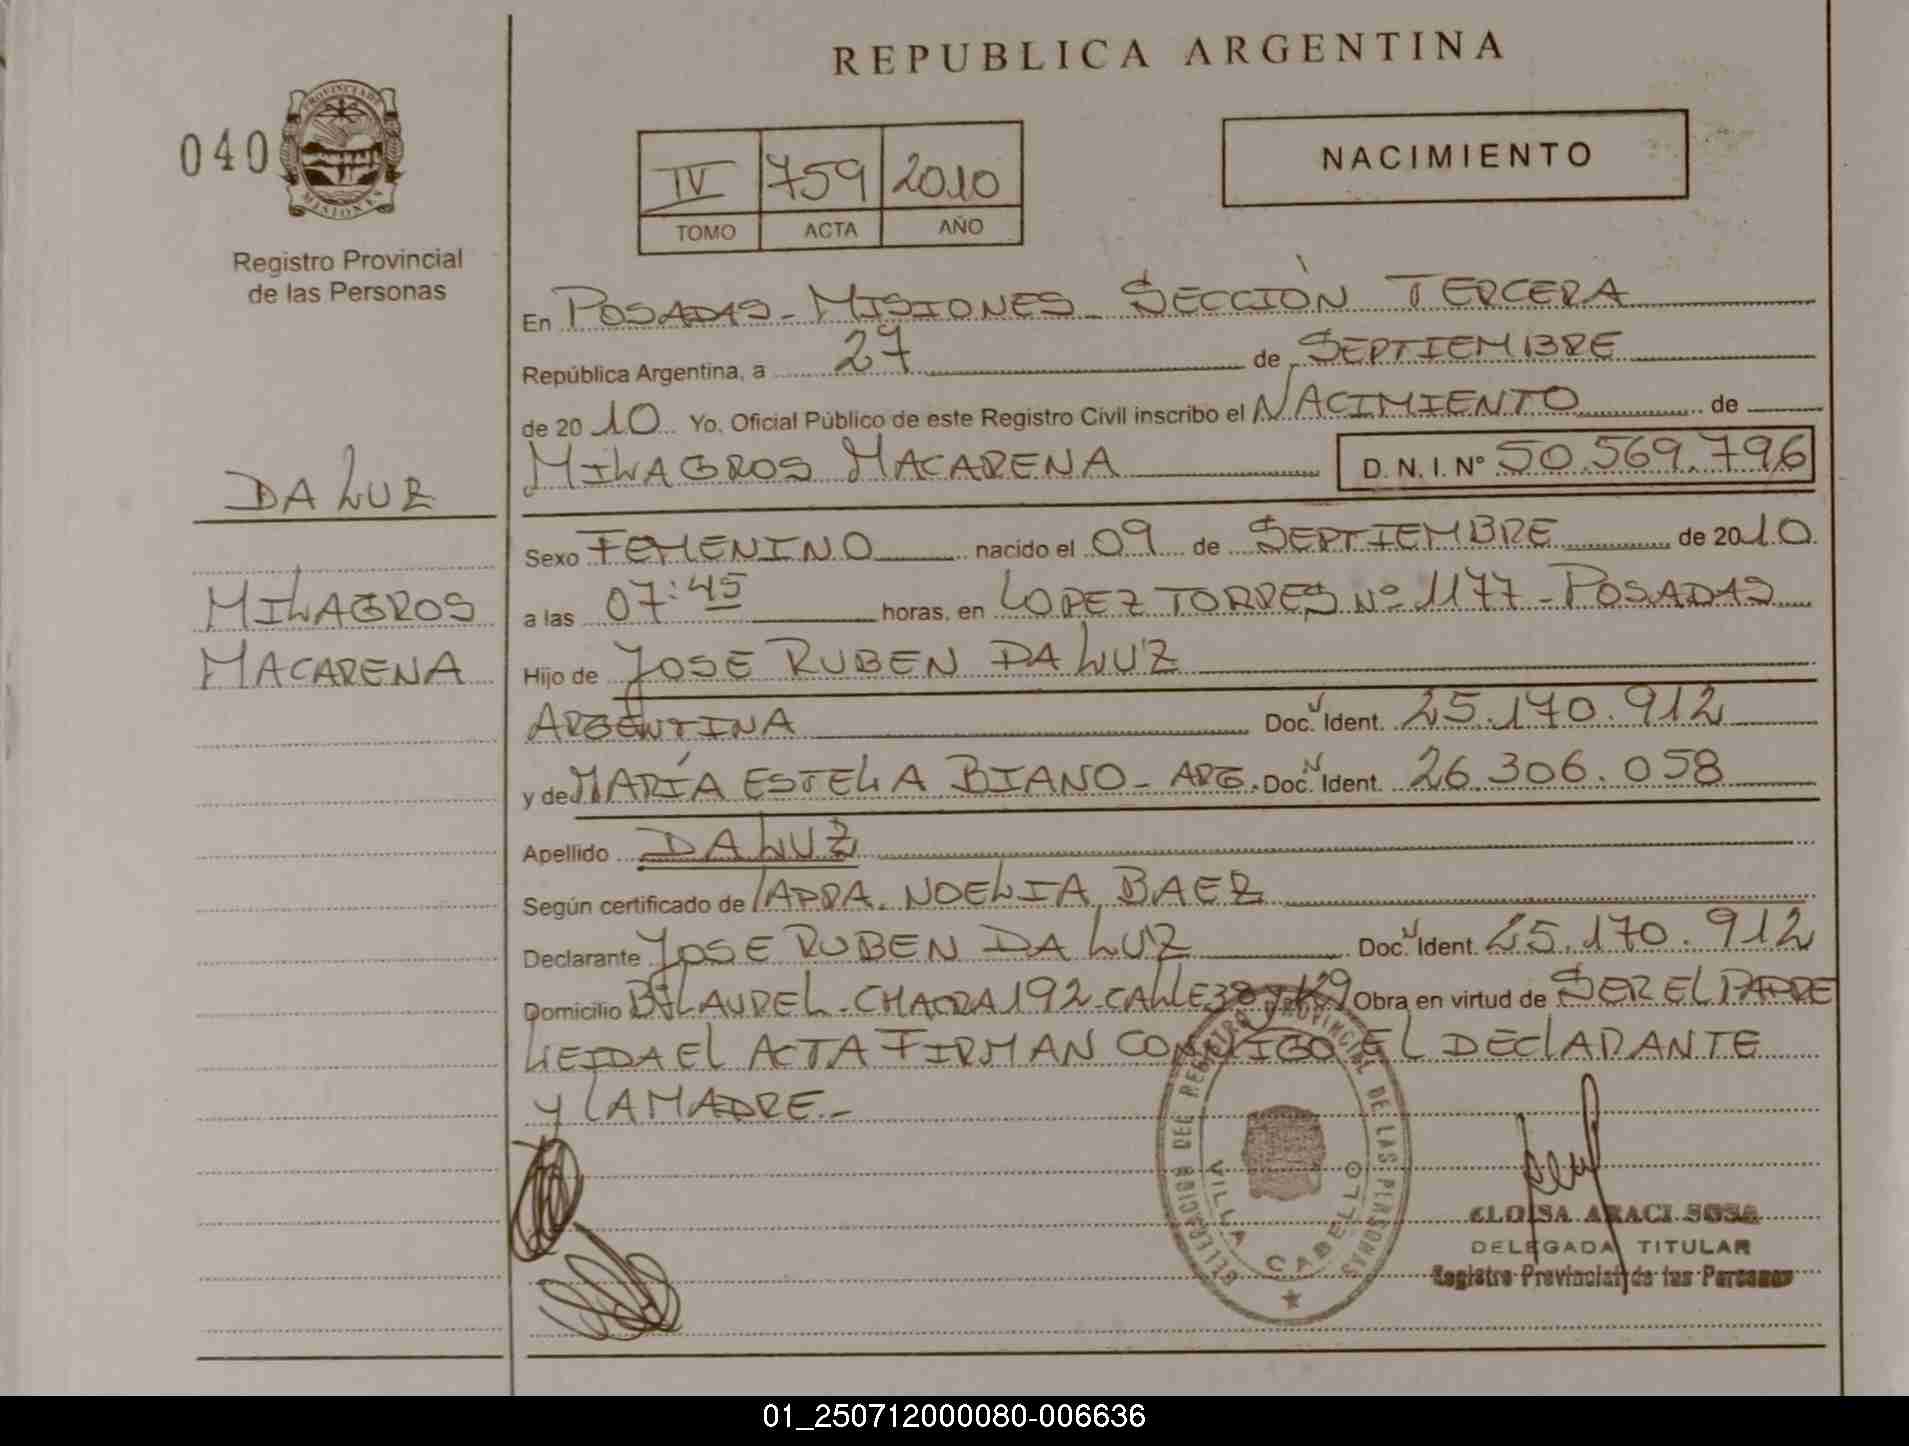 REPUBLICA ARGENTINA
040
PROVINCIA DE
MISIONES
Registro Provincial
de las Personas
IV 759 2010
TOMO ACTA AÑO
NACIMIENTO
En POSADAS - MISIONES - SECCIÓN TERCERA
República Argentina, a 27 de SEPTIEMBRE
de 2010 Yo, Oficial Público de este Registro Civil inscribo el NACIMIENTO de
MILAGROS MACARENA D. N. I. Nº 50.569.796
DA LUZ
MILAGROS
MACARENA
Sexo FEMENINO nacido el 09 de SEPTIEMBRE de 2010
a las 07:45 horas, en LOPEZ TORRES Nº 1177 - POSADAS
Hijo de JOSE RUBEN DA LUZ
ARGENTINA Doc. Ident. 25.170.912
y de MARÍA ESTELA BIANO - ARG. Doc. Ident. 26.306.058
Apellido DA LUZ
Según certificado de NOELIA BAEZ
Declarante JOSE RUBEN DA LUZ Doc. Ident. 25.170.912
Domicilio Bº LAUREL - CHACRA 192 - CALLE 38 y Obra en virtud de SER EL PADRE
LEIDA EL ACTA FIRMAN CONMIGO EL DECLARANTE
Y LA MADRE.-
DELEGACION DEL REGISTRO PROVINCIAL DE LAS PERSONAS
VILLA CABELLO
ELOISA ARACI SOSA
DELEGADA TITULAR
Registro Provincial de las Personas
01_250712000080-006636